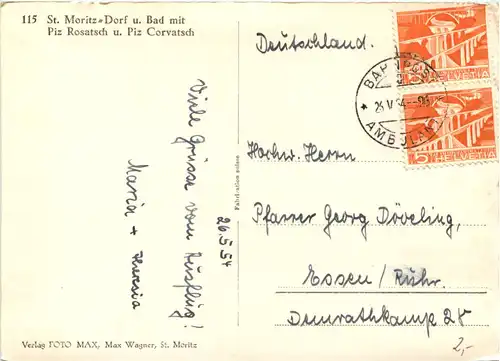 115 St. Moritz-Dorf u. Bad mit
Piz Rosatsch u. Piz Corvatsch
Deutschland.
BAHNPOST
* 26.V.54.
AMBULANT
HELVETIA
5 HELVETIA
Viele Grüsse vom Ausflug!
26.5.54
Maria + Theresia
Hochw. Herrn
Pfarrer Georg Döveling,
Essen/Ruhr.
Demrathkamp 28
2,-
Fabrication suisse
Verlag FOTO MAX, Max Wagner, St. Moritz